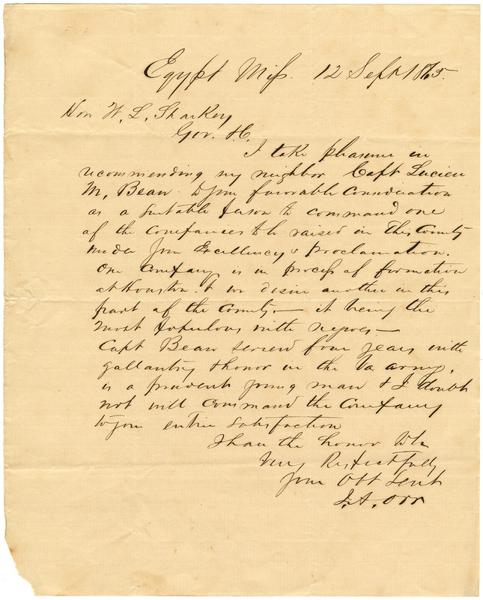 Egypt Miss. 12 Sept 1865.
Hon W. L. Sharkey
Gov. &c.
I take pleasure in
recommending my neighbor Capt Lucien
M. Bean to your favorable Consideration
as a suitable person to command one
of the Companies to be raised in this County
under your Excellency's proclamation.
One Company is in process of formation
at Houston & we desire another in this
part of the County — it being the
most populous with negroes —
Capt Bean served four years with
gallantry & honor in the Va army,
is a prudent young man & I doubt
not will command the Company
to your entire satisfaction
I have the honor to be
Very Respectfully
Your Obt Servt
J. A. Orr